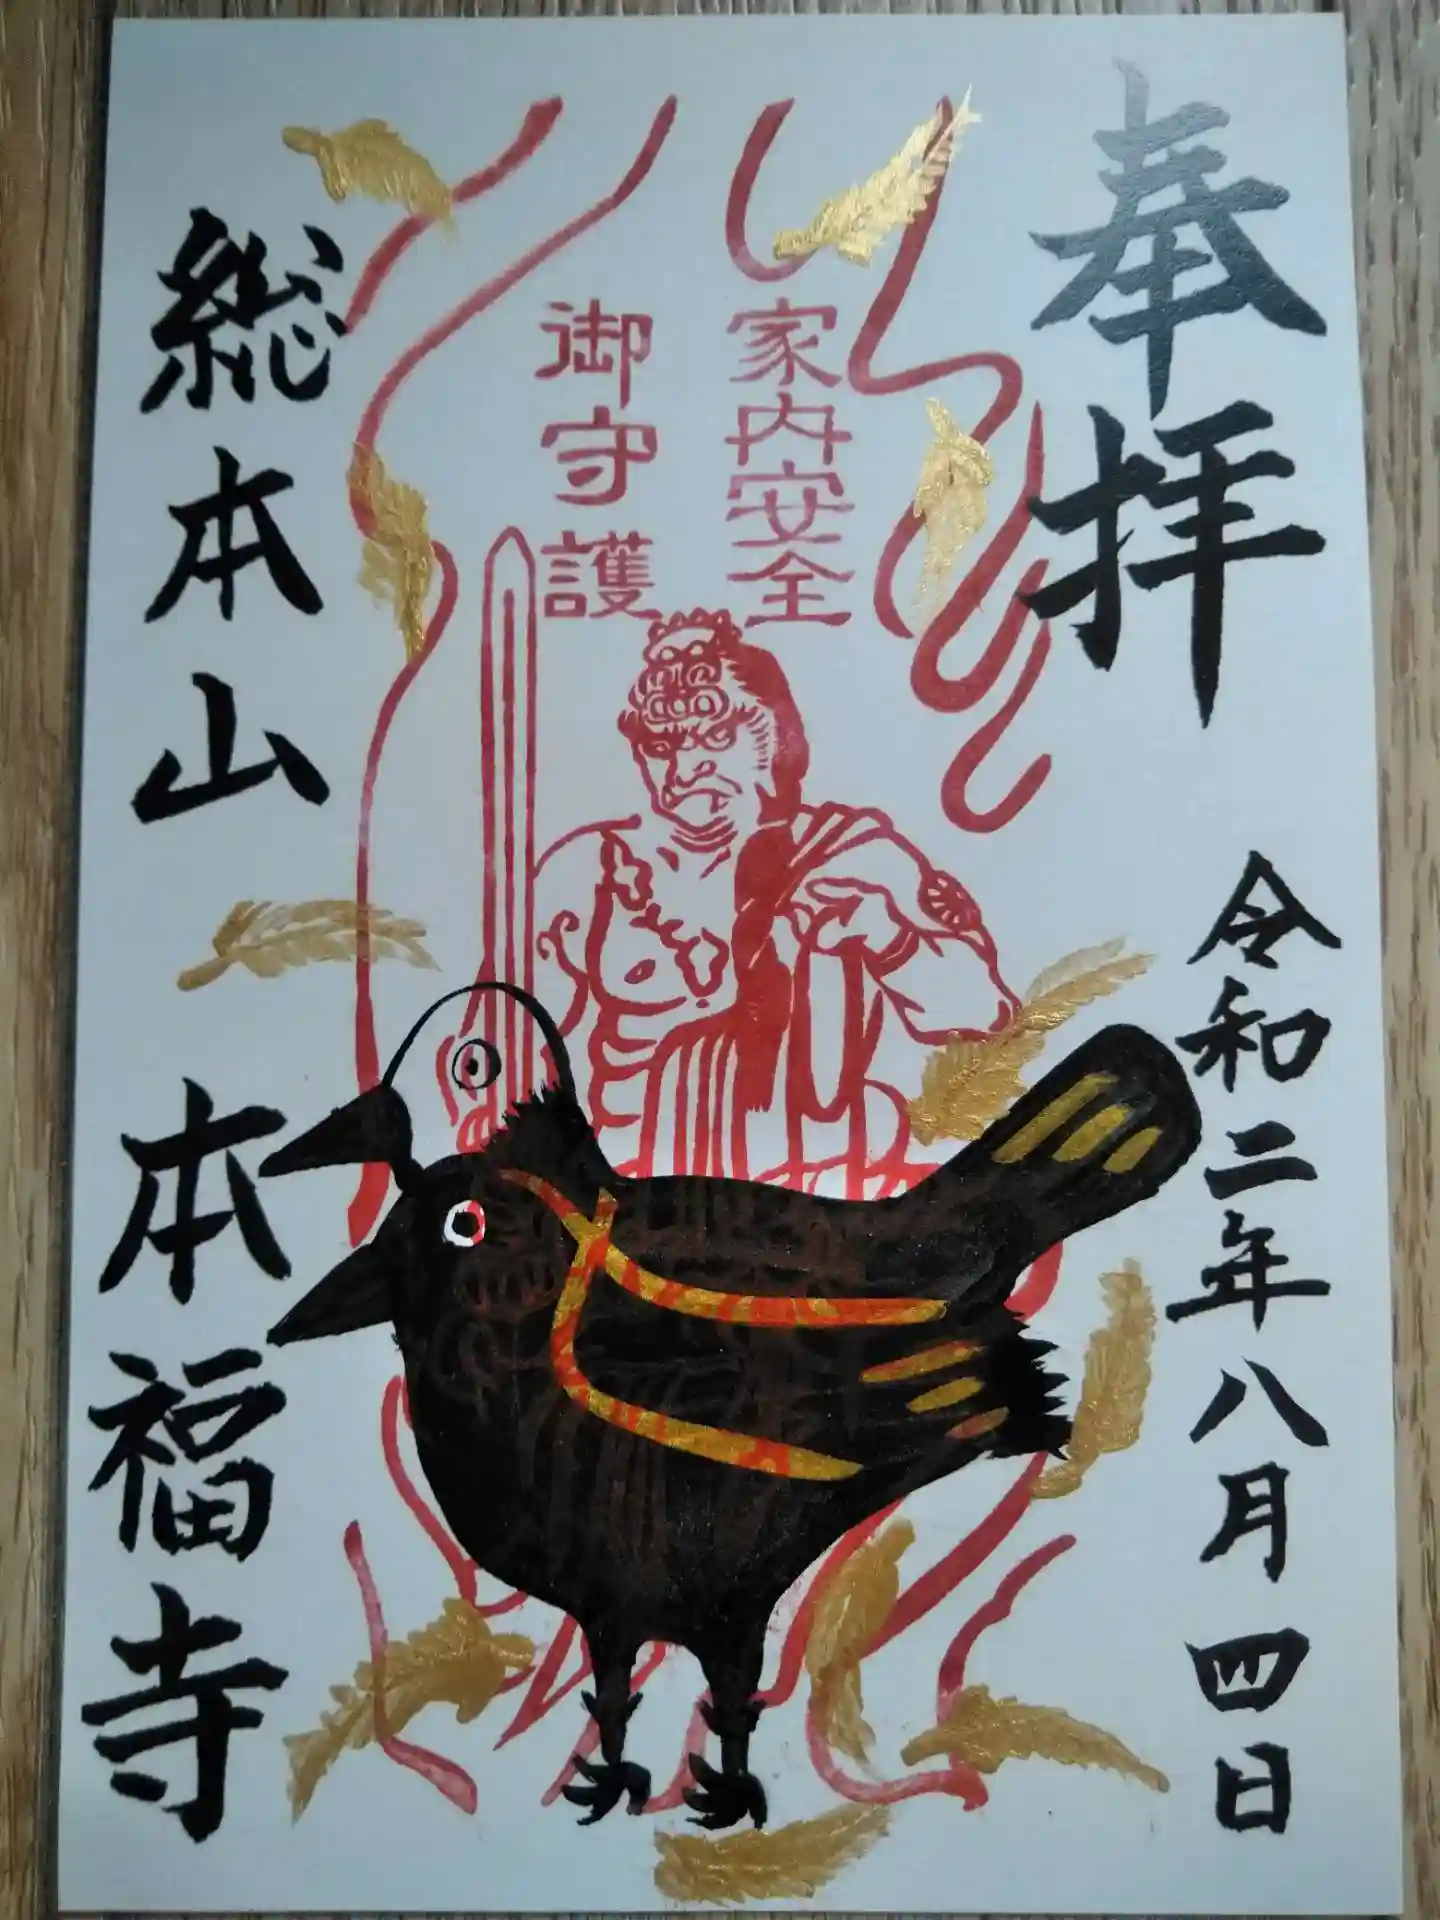 奉拝
令和二年八月四日
家内安全
御守護
総本山 本福寺